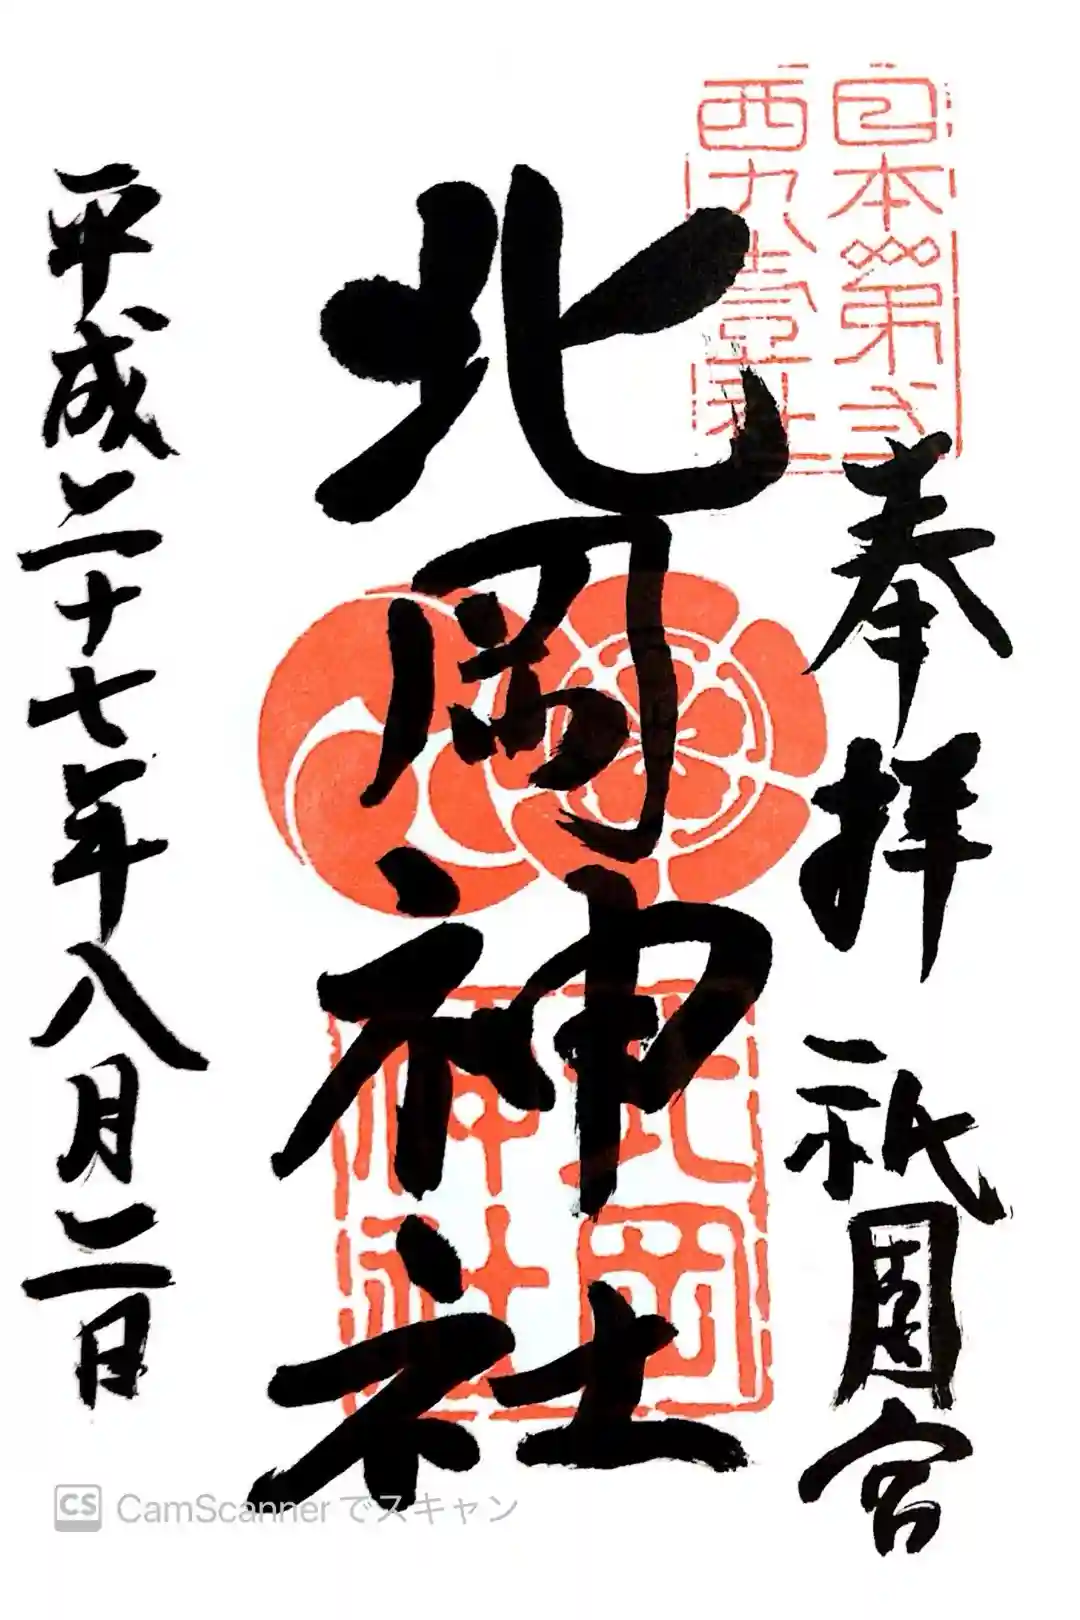 日本第弐
西九壹社
奉拝 祇園宮
北岡神社
北岡
神社
平成二十七年八月二日
CS CamScanner でスキャン